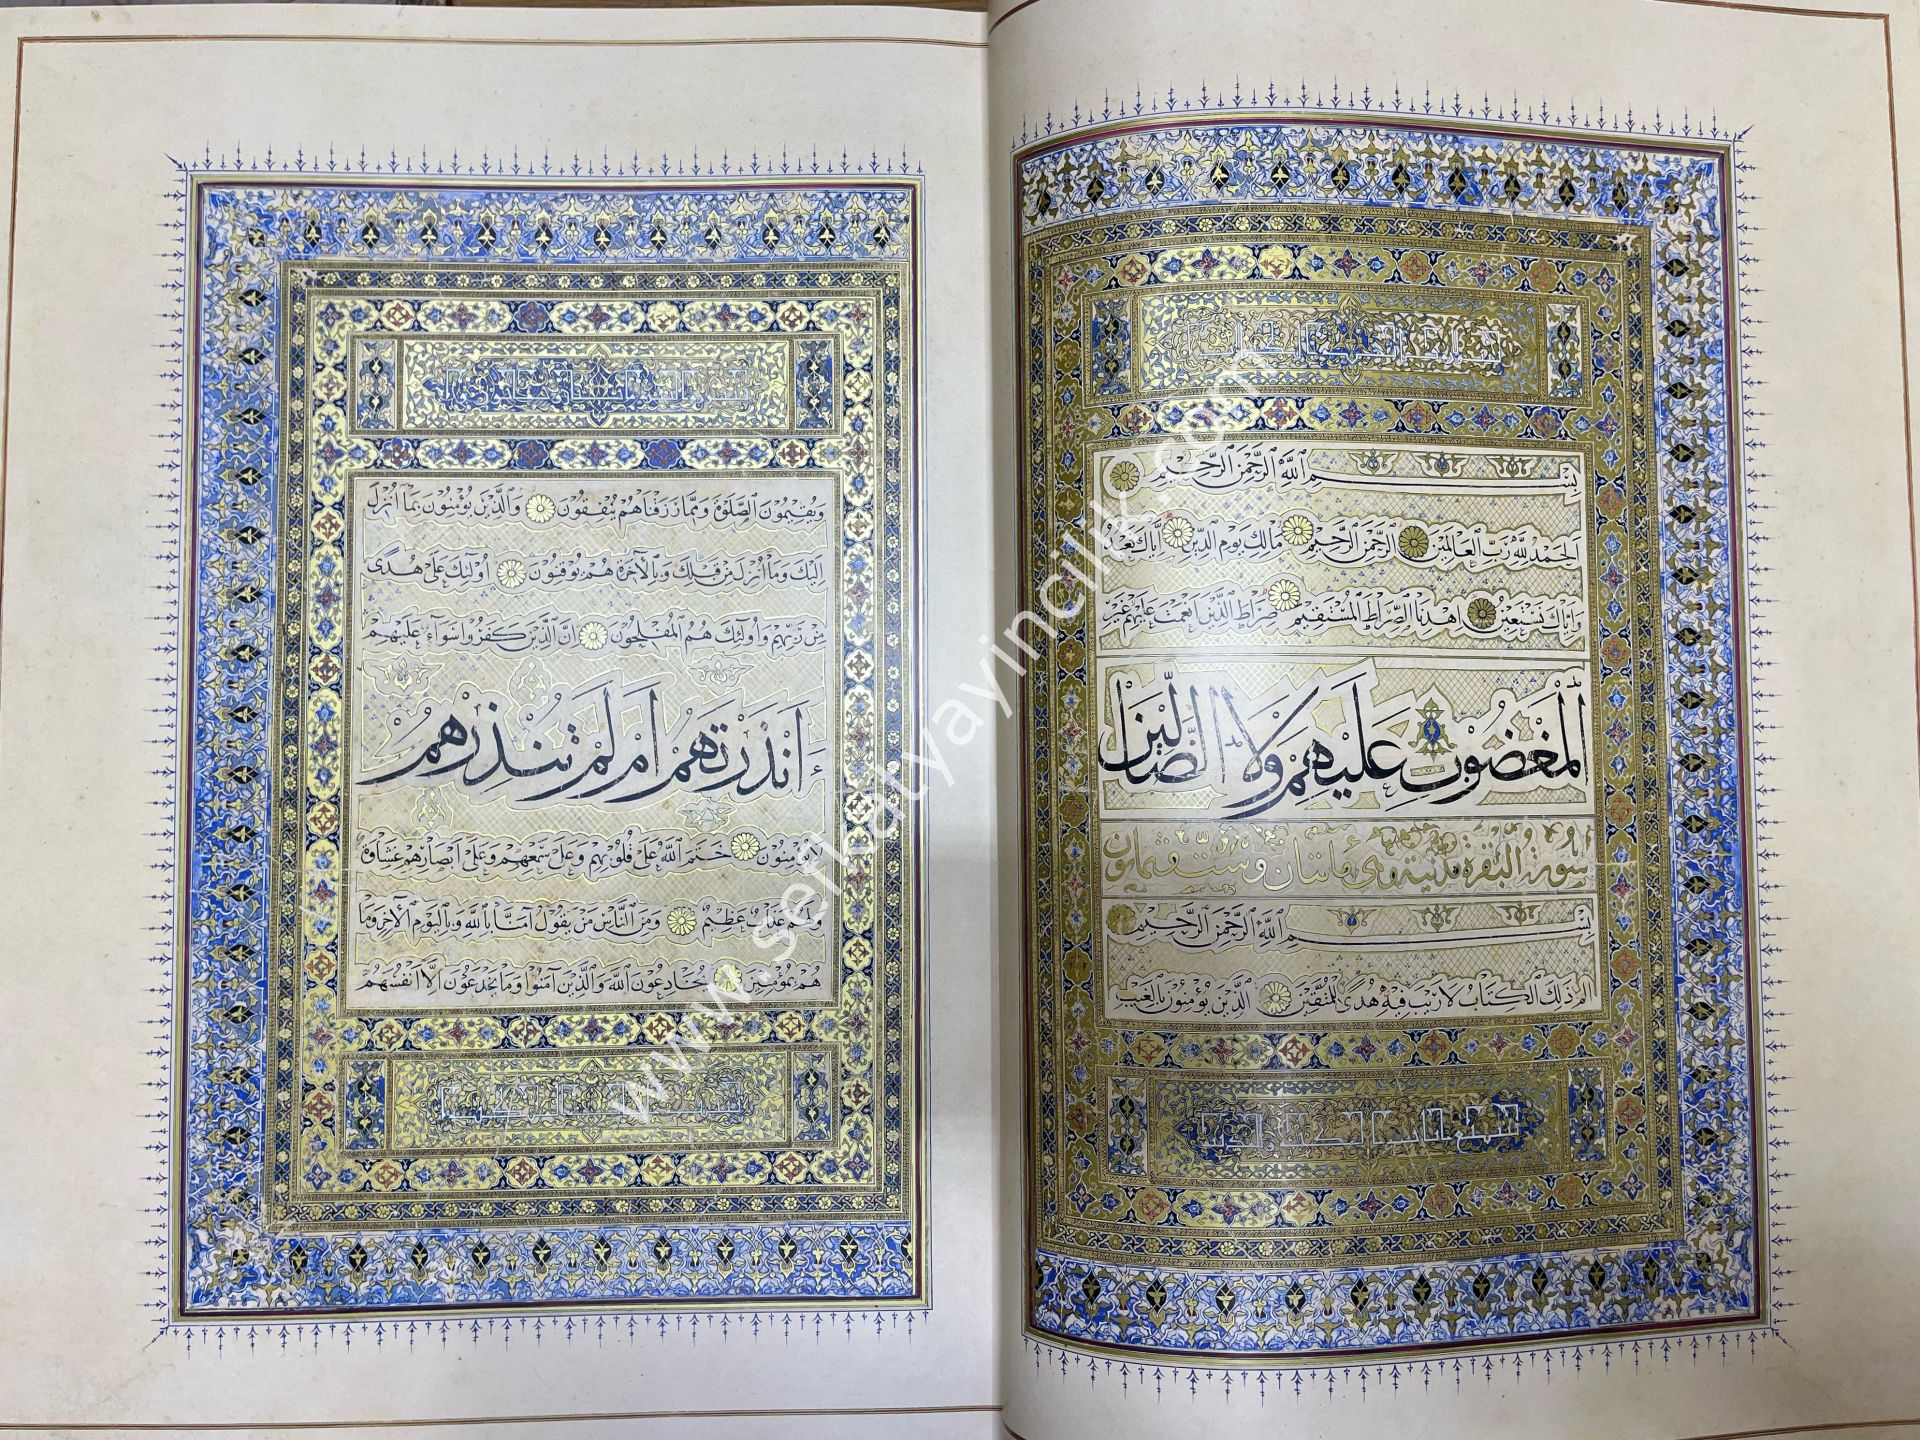 بسم الله الرحمن الرحيم
الحمد لله رب العالمين الرحمن الرحيم مالك يوم الدين اياك نعبد
واياك نستعين اهدنا الصراط المستقيم صراط الذين انعمت عليهم غير
المغضوب عليهم ولا الضالين
سورة البقرة مدنية وهي مائتان وست وثمانون
بسم الله الرحمن الرحيم
الم ذلك الكتاب لا ريب فيه هدى للمتقين الذين يؤمنون بالغيب
ويقيمون الصلوة ومما رزقناهم ينفقون والذين يؤمنون بما انزل
اليك وما انزل من قبلك وبالآخرة هم يوقنون اولئك على هدى
من ربهم واولئك هم المفلحون ان الذين كفروا سواء عليهم
ءانذرتهم ام لم تنذرهم
لا يؤمنون ختم الله على قلوبهم وعلى سمعهم وعلى ابصارهم غشاوة
ولهم عذاب عظيم ومن الناس من يقول آمنا بالله وباليوم الآخر وما
هم بمؤمنين يخادعون الله والذين آمنوا وما يخدعون الا انفسهم
www.seflatyayincilik.com